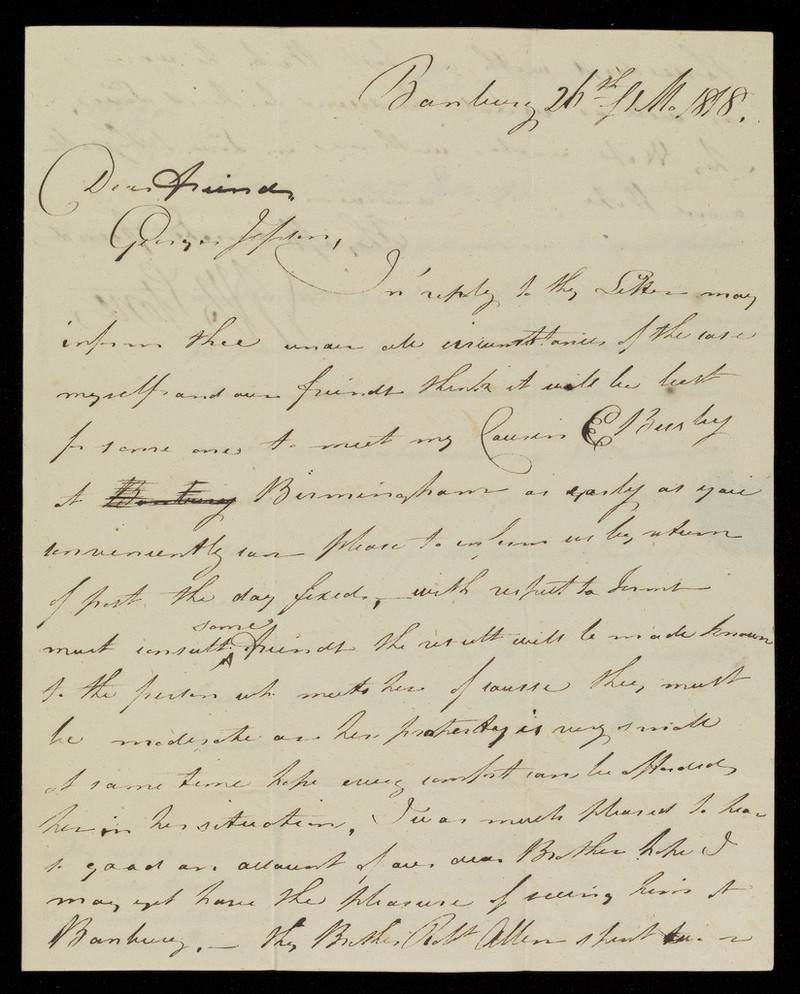 Banbury 26th of 1 Mo. 1818.
Dear friend,
George Jepson,
In reply to thy Letter may
inform thee under all circumstances of the case
myself and our friends think it will be best
for some one to meet my Cousin E Busby
at Banbury Birmingham as early as you
conveniently can please to inform us by return
of post the day fixed, with respect to Terms
must consult some friends the result will be made known
to the person who meets her of course they must
be moderate as her property is very small
at same time hope every comfort can be afforded
her in her situation, I was much pleased to hear
so good an account of our dear Brother hope I
may yet have the pleasure of seeing him at
Banbury. — thy Brother Robt Allen spent